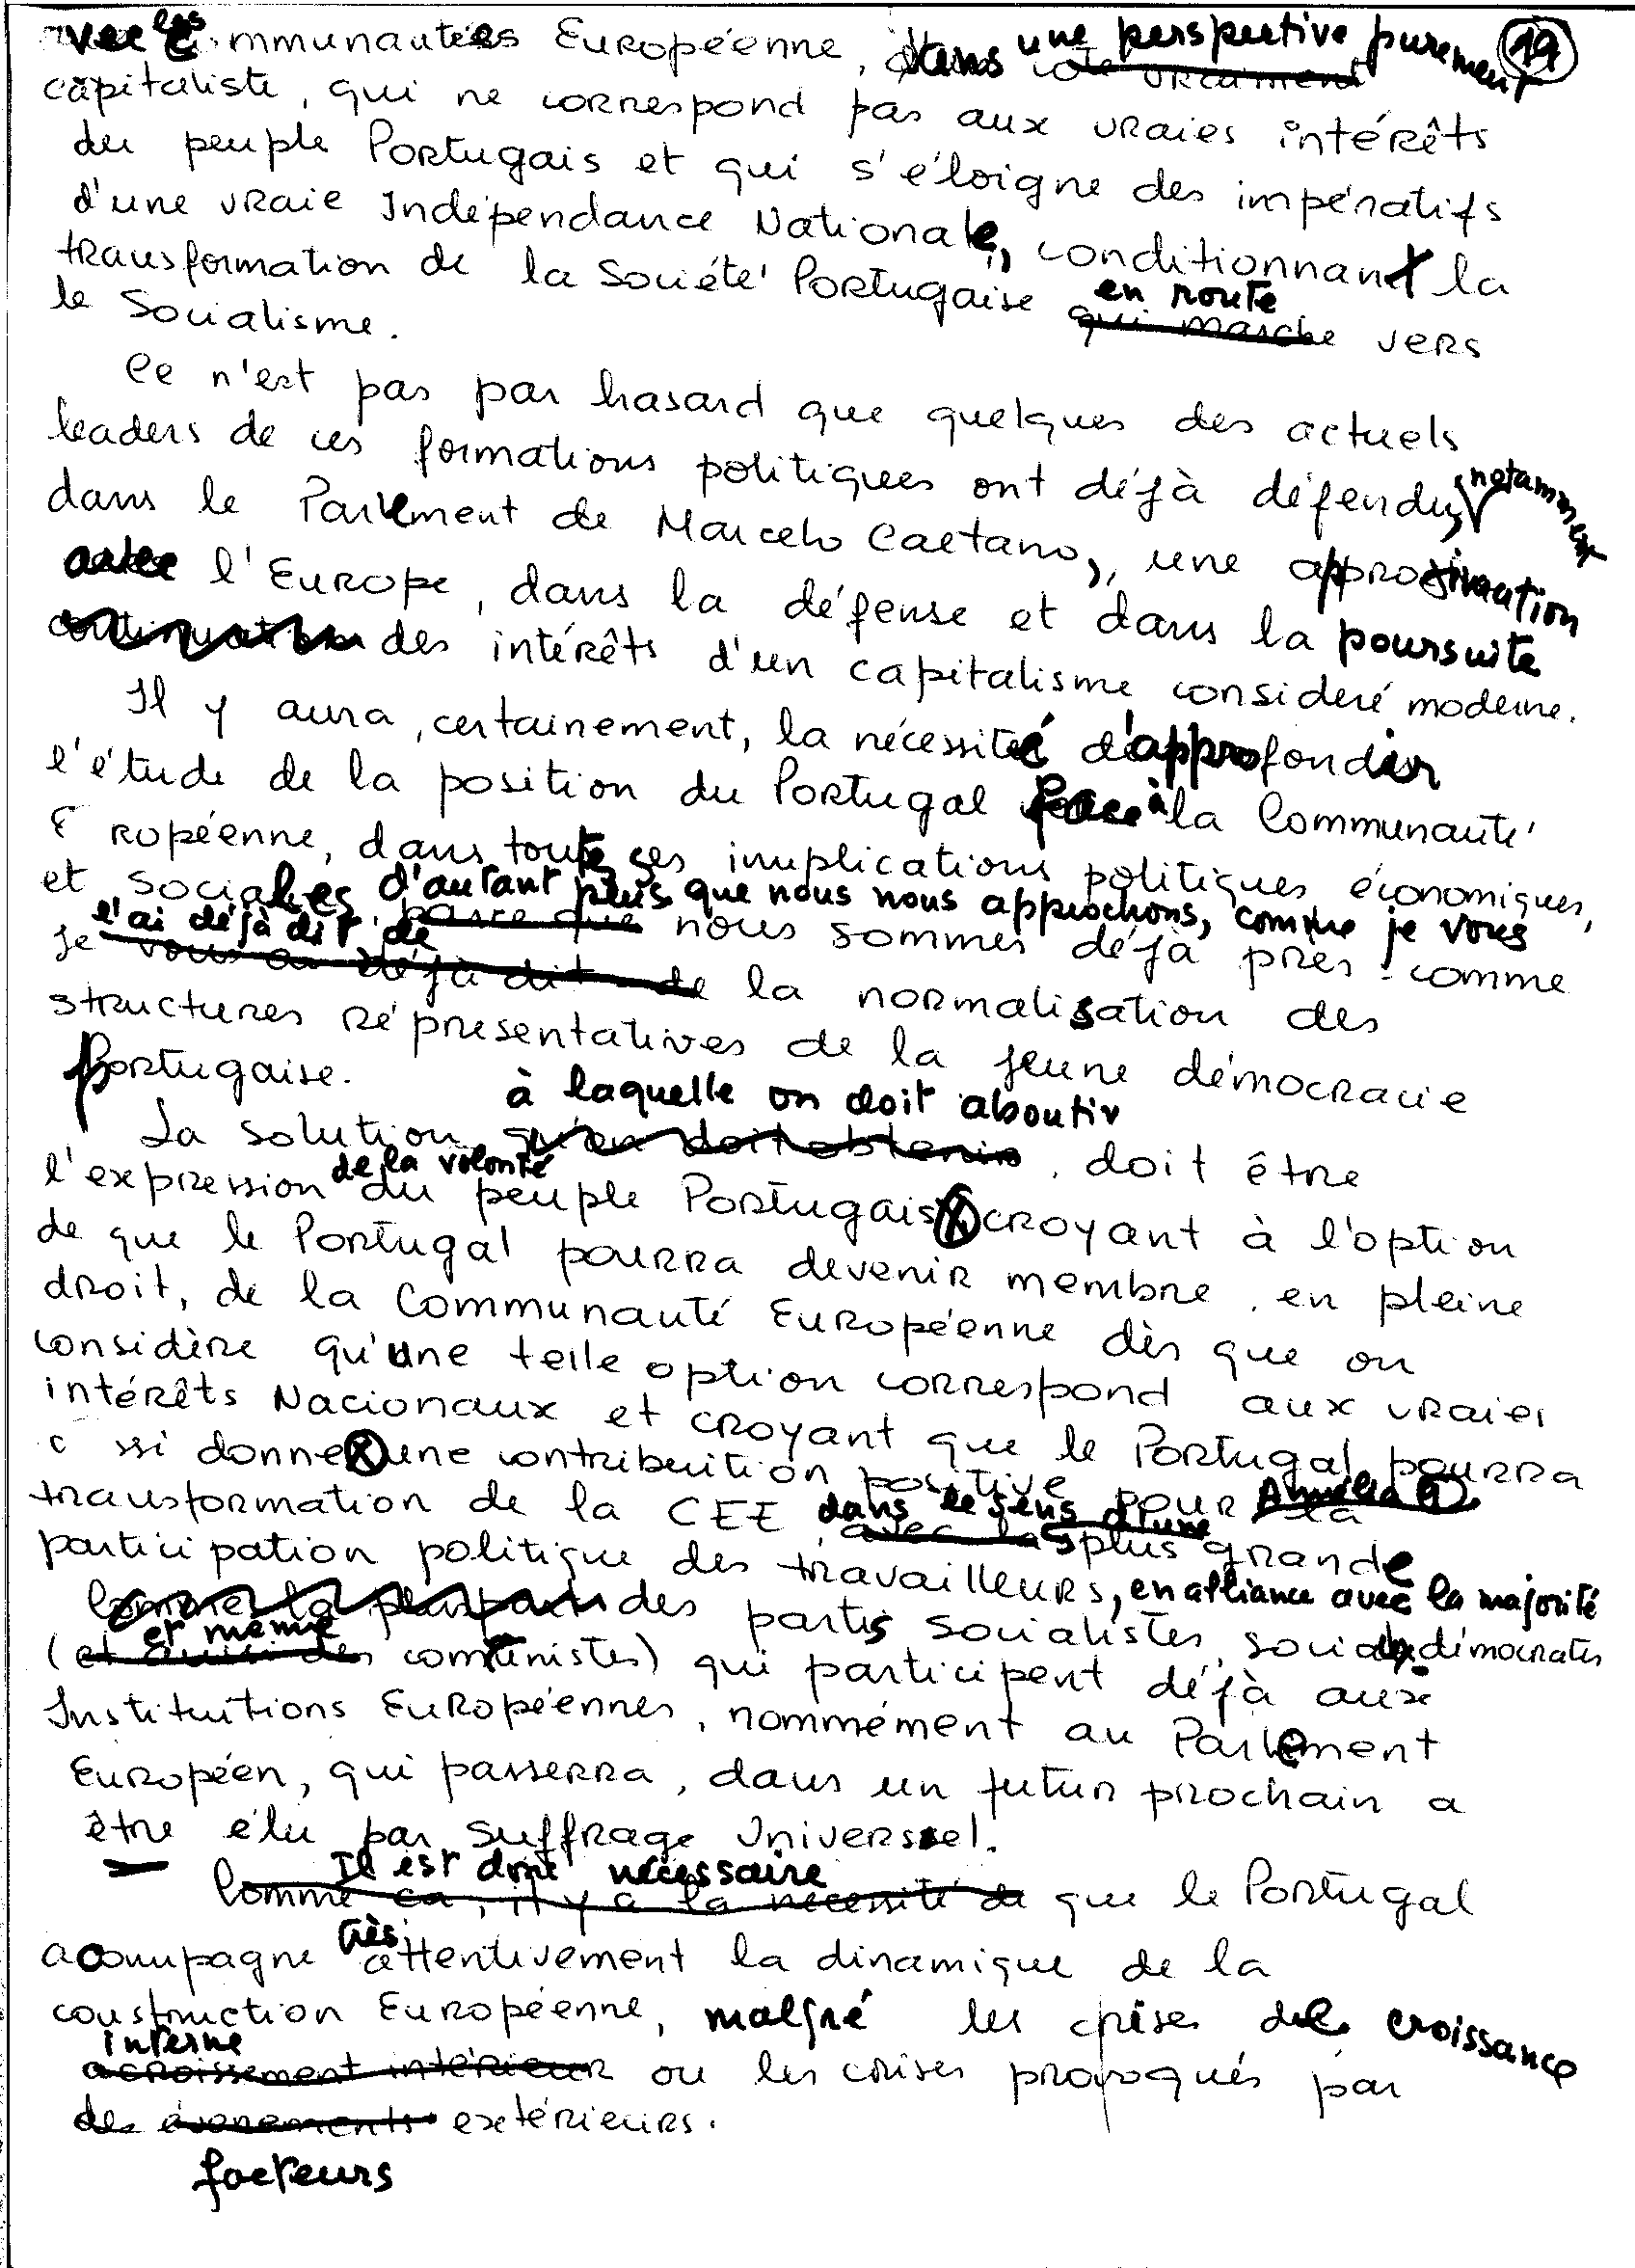 avec les Communautés Européenne, dans une perspective purement 19
capitaliste, qui ne correspond pas aux vraies intérêts
du peuple Portugais et qui s'éloigne des impératifs
d'une vraie Indépendance Nationale, conditionnant la
transformation de la Société Portugaise en route vers
qui marche
le Socialisme.
Ce n'est pas par hasard que quelques des actuels
leaders de ces formations politiques ont déjà défendu, notamment
dans le Parlement de Marcelo Caetano, une approximation
avec l'Europe, dans la défense et dans la poursuite
continuation des intérêts d'un capitalisme consideré moderne.
Il y aura, certainement, la nécessité d'approfondir
l'étude de la position du Portugal face à la Communauté
E ropéenne, dans toute ses implications politiques, économiques,
et sociales, d'autant plus que nous nous approchons, comme je vous
parce que nous sommes déjà près - comme
l'ai déjà dit, de
je vous ai déjà dit - de la normalisation des
structures représentatives de la jeune démocracie
portugaise.
à laquelle on doit aboutir
La solution qu'on doit obtenir, doit être
de la volonté
l'expression du peuple Portugais croyant à l'option
de que le Portugal pourra devenir membre, en pleine
droit, de la Communauté Européenne dès que on
considère qu'une telle option correspond aux vraies
intérêts Nacionaux et croyant que le Portugal pourra
c ssi donner une contribuition positive pour la
transformation de la CEE dans le sens d'une
avec la plus grande
participation politique des travailleurs, en alliance avec la majorité
Comme la plupart des partis socialistes, social-démocrates
et même
(et aussi des communistes) qui participent déjà aux
Institutions Européennes, nommément au Parlement
Européen, qui passerra, dans un futur prochain a
être élu par Suffrage Universel.
Il est donc nécessaire
Comme ca, il y a la necessité de que le Portugal
acompagne très attentivement la dinamique de la
construction Européenne, malgré les crises de croissance
interne
accroissement intérieur ou les crises provoqués par
des évenements extérieurs.
facteurs